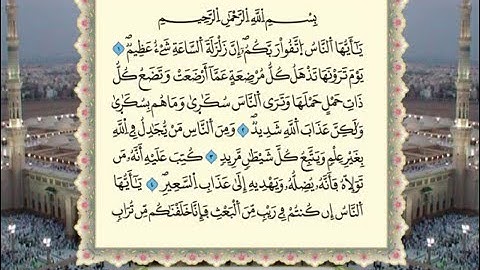 بِسْمِ اللَّهِ الرَّحْمَٰنِ الرَّحِيمِ
يَا أَيُّهَا النَّاسُ اتَّقُوا رَبَّكُمْ إِنَّ زَلْزَلَةَ السَّاعَةِ شَيْءٌ عَظِيمٌ ١
يَوْمَ تَرَوْنَهَا تَذْهَلُ كُلُّ مُرْضِعَةٍ عَمَّا أَرْضَعَتْ وَتَضَعُ كُلُّ
ذَاتِ حَمْلٍ حَمْلَهَا وَتَرَى النَّاسَ سُكَارَىٰ وَمَا هُم بِسُكَارَىٰ
وَلَٰكِنَّ عَذَابَ اللَّهِ شَدِيدٌ ٢ وَمِنَ النَّاسِ مَن يُجَادِلُ فِي اللَّهِ
بِغَيْرِ عِلْمٍ وَيَتَّبِعُ كُلَّ شَيْطَانٍ مَّرِيدٍ ٣ كُتِبَ عَلَيْهِ أَنَّهُ مَن
تَوَلَّاهُ فَأَنَّهُ يُضِلُّهُ وَيَهْدِيهِ إِلَىٰ عَذَابِ السَّعِيرِ ٤ يَا أَيُّهَا
النَّاسُ إِن كُنتُمْ فِي رَيْبٍ مِّنَ الْبَعْثِ فَإِنَّا خَلَقْنَاكُم مِّن تُرَابٍ